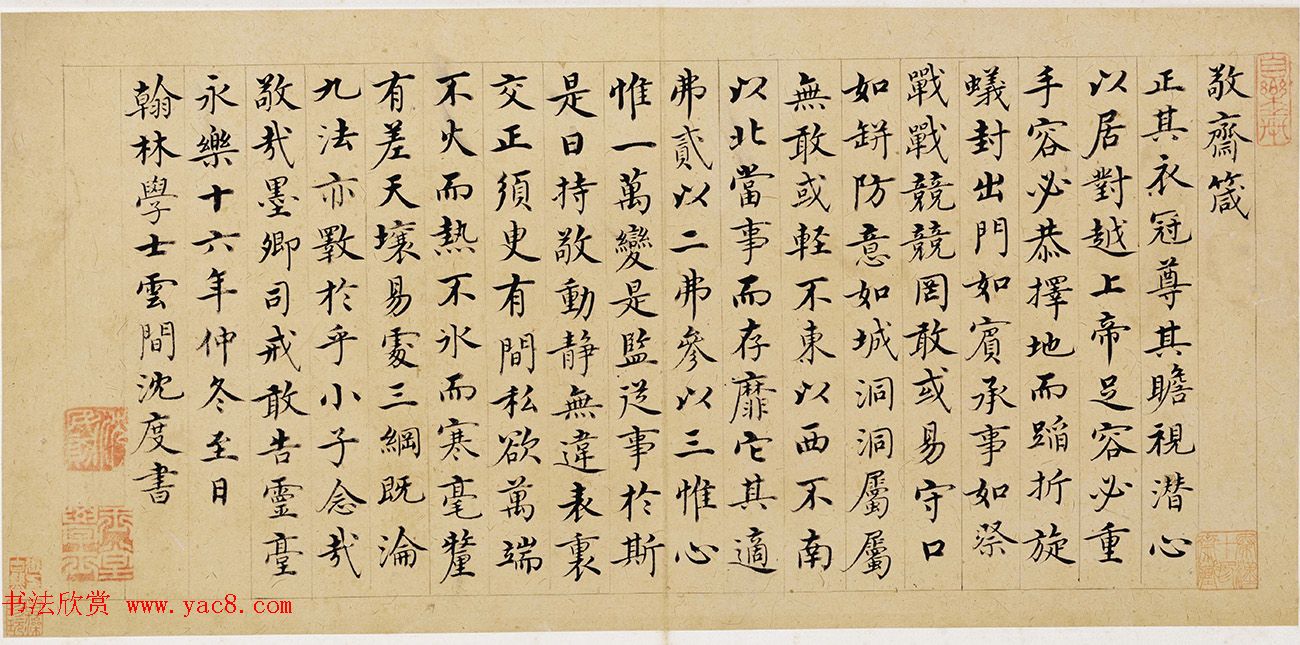 敬齋箴
正其衣冠尊其瞻視潛心
以居對越上帝足容必重
手容必恭擇地而蹈折旋
蟻封出門如賓承事如祭
戰戰兢兢罔敢或易守口
如缾防意如城洞洞屬屬
無敢或輕不東以西不南
以北當事而存靡它其適
弗貳以二弗參以三惟心
惟一萬變是監從事於斯
是曰持敬動靜無違表裏
交正須臾有間私欲萬端
不火而熱不氷而寒毫釐
有差天壤易處三綱既淪
九法亦斁於乎小子念哉
敬哉墨卿司戒敢告靈臺
永樂十六年仲冬至日
翰林學士雲間沈度書
书法欣赏 www.yac8.com